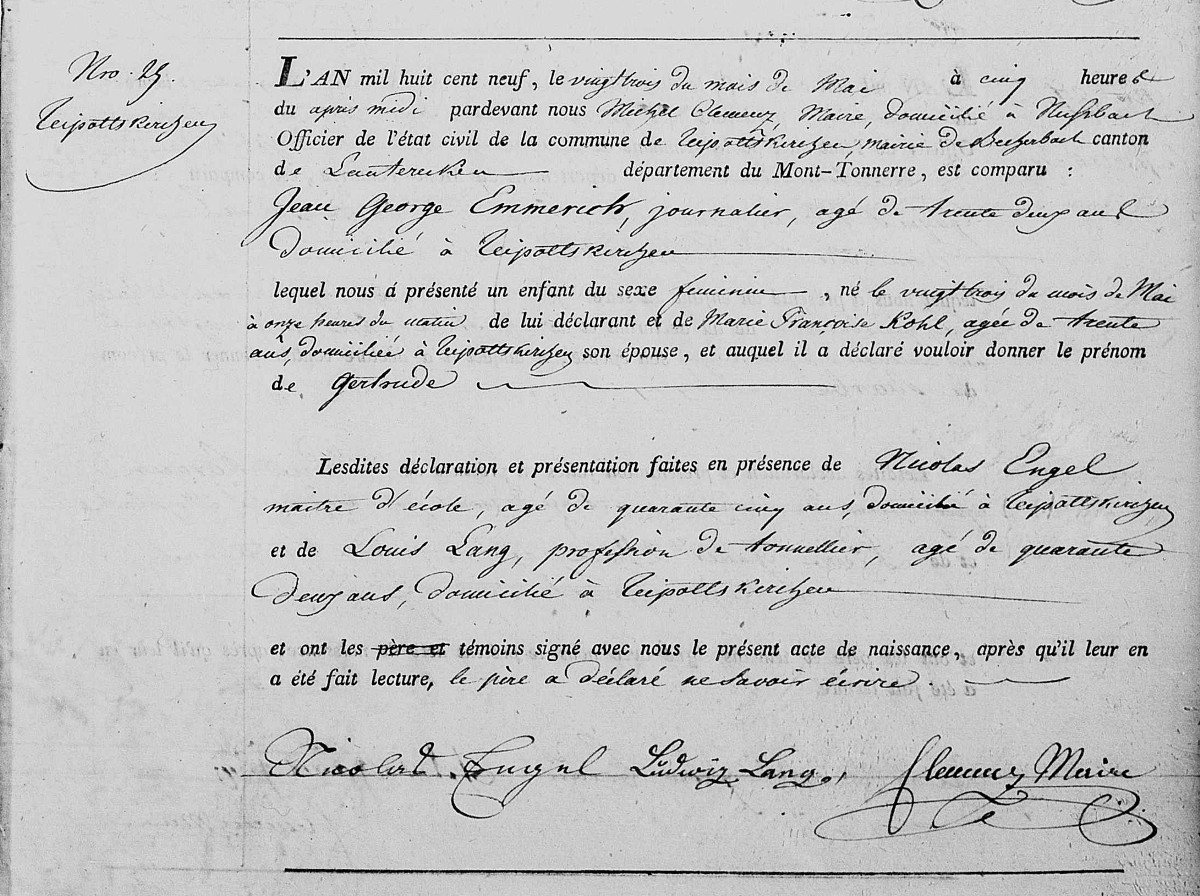 Nro. 25.
Reipoltskirchen
L'AN mil huit cent neuf, le vingt trois du mois de Mai à cinq heures
du après midi pardevant nous Michel Clemenz, Maire, domicilié à Nussbach
Officier de l'état civil de la commune de Reipoltskirchen, mairie de Becherbach canton
de Lauterecken département du Mont-Tonnerre, est comparu :
Jean George Emmerich, journalier, agé de trente deux ans
domicilié à Reipoltskirchen
lequel nous á présenté un enfant du sexe feminin, né le vingt trois du mois de Mai
à onze heures du matin de lui déclarant et de Marie Françoise Kohl, agée de trente
ans, domiciliée à Reipoltskirchen son épouse, et auquel il a déclaré vouloir donner le prénom
de Gertrude
Lesdites déclaration et présentation faites en présence de Nicolas Engel
maitre d'école, agé de quarante cinq ans, domicilié à Reipoltskirchen
et de Louis Lang, profession de tonnellier, agé de quarante
deux ans, domicilié à Reipoltskirchen
et ont les père et témoins signé avec nous le présent acte de naissance, après qu'il leur en
a été fait lecture, le père a déclaré ne savoir écrire.
Nicolas Engel Ludwig Lang, Clemenz Maire